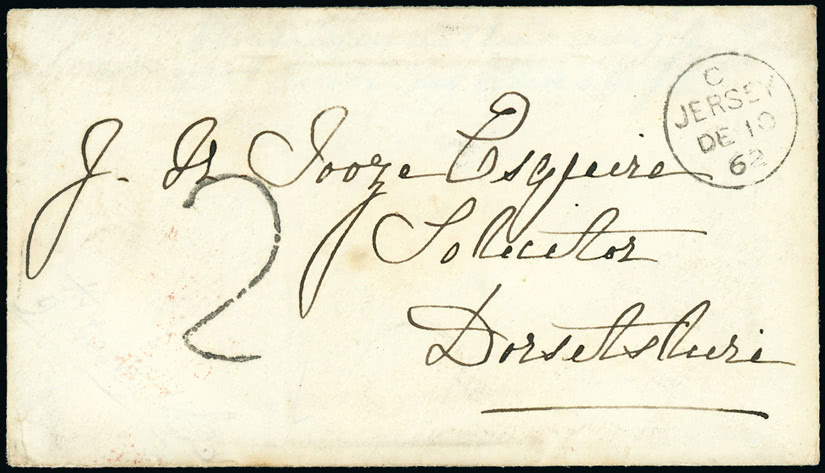 C
JERSEY
DE 10
62
J. H Tooze Esquire
2
Solicitor
Dorsetshire